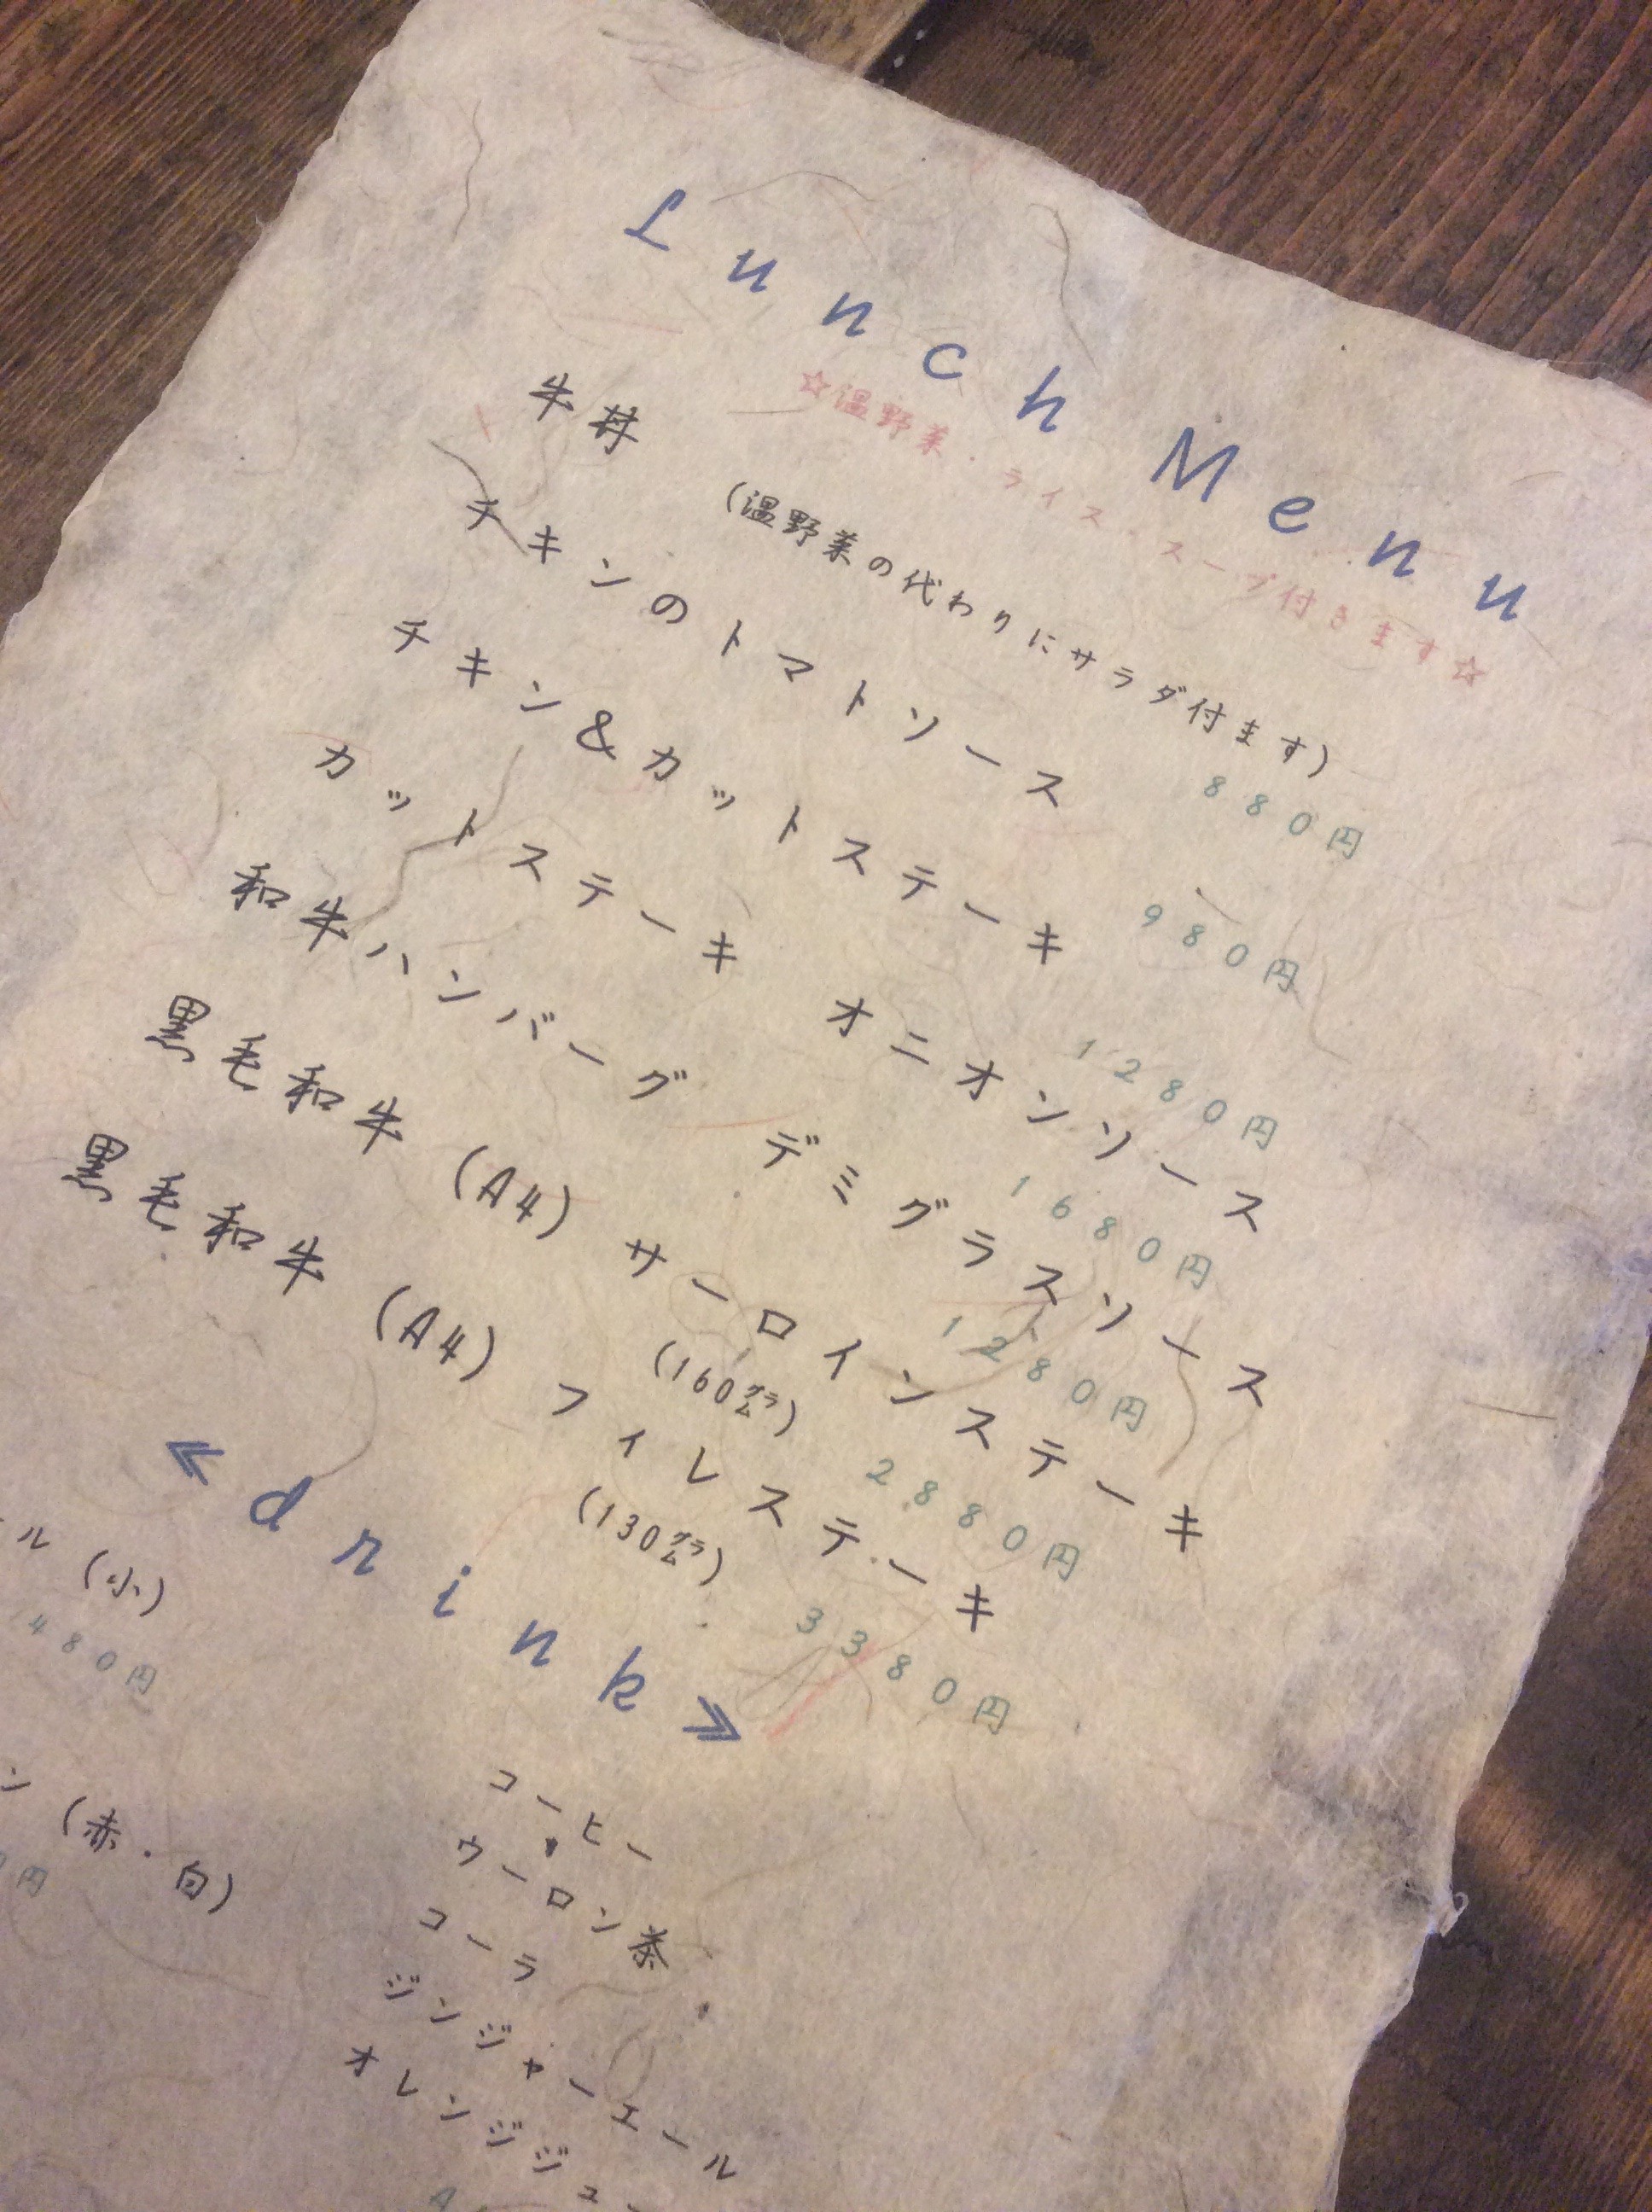 Lunch Menu
☆温野菜・ライス・スープ付きます☆
牛丼 (温野菜の代わりにサラダ付ます) 880円
チキンのトマトソース 980円
チキン&カットステーキ 1280円
カットステーキ オニオンソース 1680円
和牛ハンバーグ デミグラスソース 1280円
黒毛和牛 (A4) サーロインステーキ
(160グラム) 2880円
黒毛和牛 (A4) フィレステーキ
(130グラム) 3380円
≪drink≫
ル (小)
480円
ン (赤・白)
円
コーヒー
ウーロン茶
コーラ
ジンジャーエール
オレンジジュー